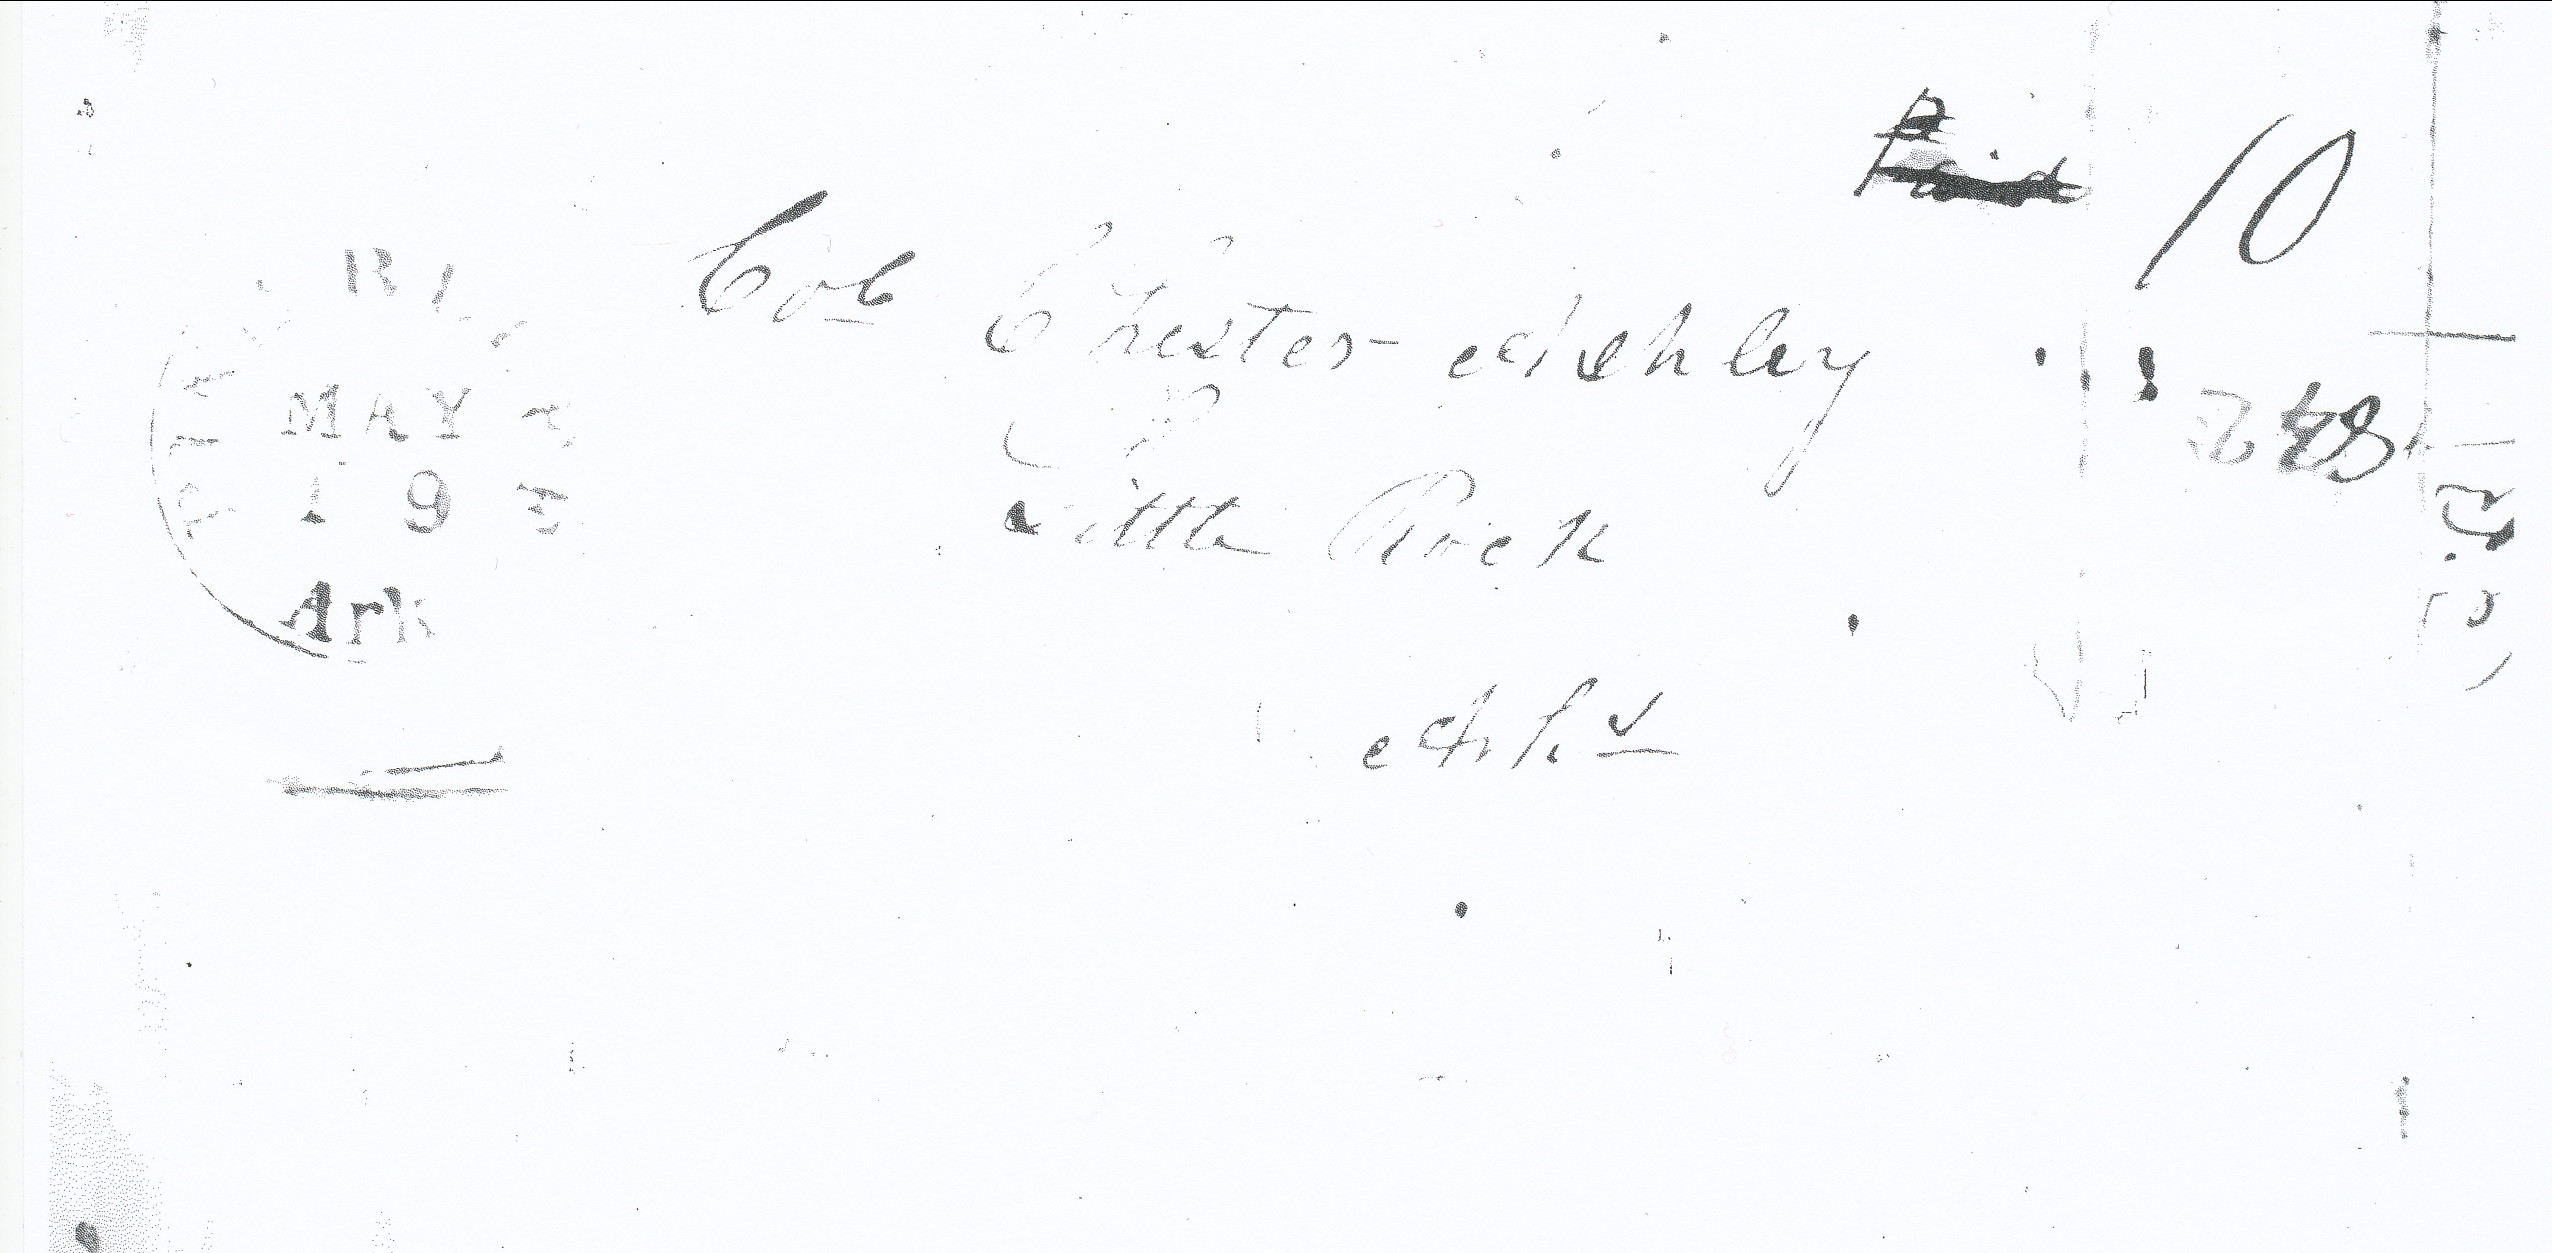 Paid 10
Col Chester Ashley
Little Rock
Ark.s
MAY
19
Ark